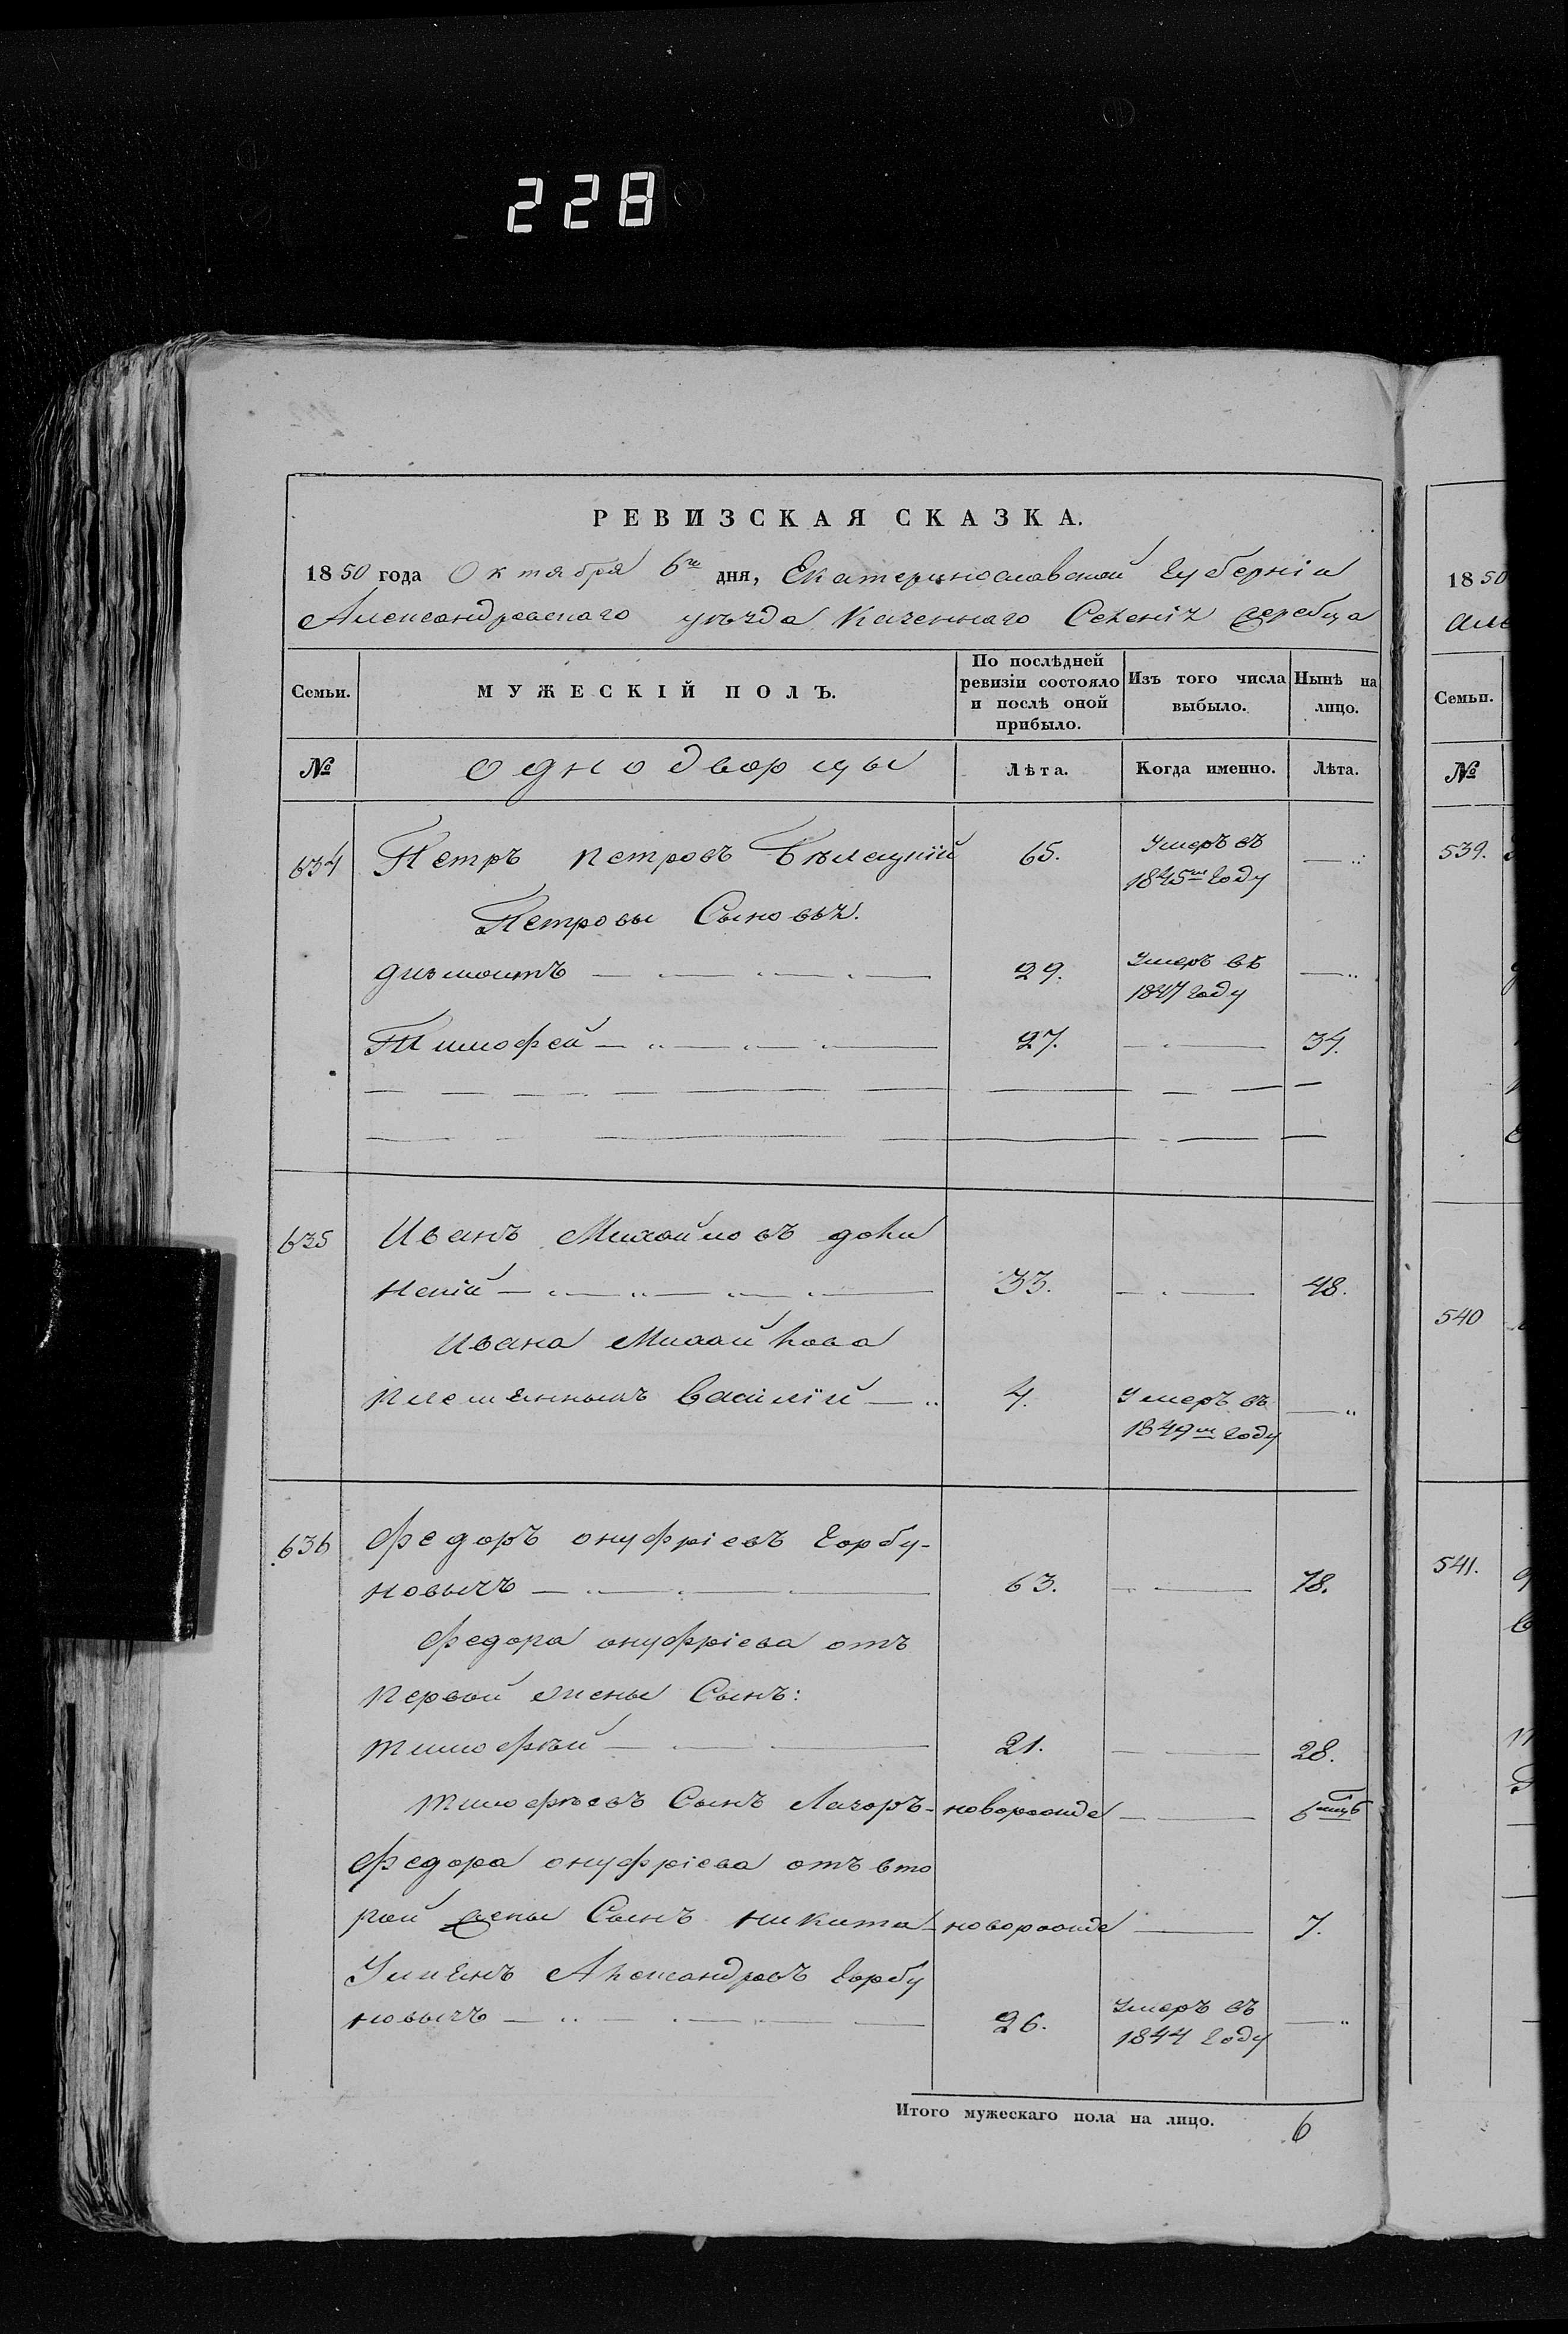 228
РЕВИЗСКАЯ СКАЗКА.
1850 года Октября 6го дня, Екатеринославской Губерніи
Александровскаго уѣзда Казеннаго Селенія Жеребца
Семьи. МУЖЕСКІЙ ПОЛЪ. По послѣдней ревизіи состояло и послѣ оной прибыло. Изъ того числа выбыло. Нынѣ на лицо.
№ Однодворцы Лѣта. Когда именно. Лѣта.
634 Петръ Петровъ Бѣлецкій 65. Умеръ въ
1845м Году
Петровы Сыновья.
29. Умеръ въ
1847 Году
Тимофей 27. 34.
635 Иванъ Михайловъ
33. 48.
Ивана Михайлова
племянникъ Василій 4. Умеръ въ
1849м Году
636 Федоръ Онуфріевъ Горбу-
новычъ 63. 78.
Федора Онуфріева отъ
Первой жены Сынъ:
Тимофѣй 21. 28.
Тимофѣевъ Сынъ Лазоръ новорожде 6 мцъ
Федора Онуфріева отъ вто
рой жены Сынъ Никита новорожде 7.
Александровъ Горбу
новычъ 26. Умеръ въ
1844 Году
Итого мужескаго пола на лицо. 6
1850
Але
Семьи.
№
539.
540
541.